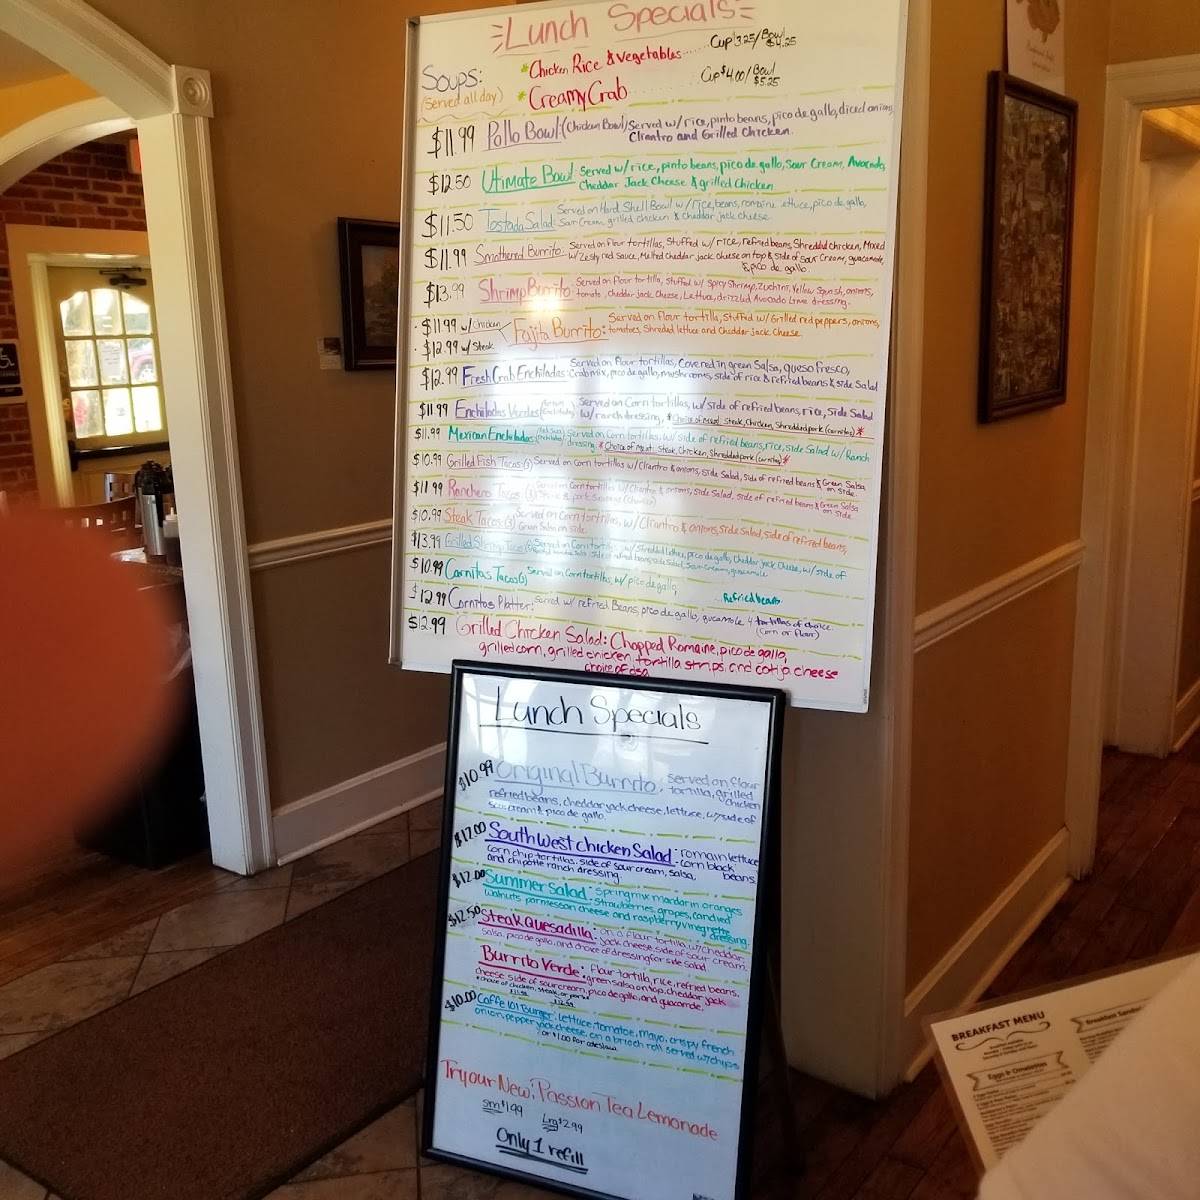 Lunch Specials
Soups:
(Served all day)
*Chicken Rice & Vegetables...... Cup 3.25/Bowl $4.25
*Creamy Crab Cup $4.00/Bowl $5.25
$11.99 Pollo Bowl:(Chicken Bowl) Served w/rice, pinto beans, pico de gallo, diced onions,
Cilantro and Grilled Chicken.
$12.50 Utimate Bowl: Served w/rice, pinto beans, pico de gallo, Sour Cream, Avocado,
Cheddar Jack Cheese & grilled Chicken
$11.50 Tostada Salad: Served on Hard Shell Bowl w/rice, beans, romaine lettuce, pico de gallo,
Sour Cream, grilled chicken & cheddar jack cheese.
$11.99 Smothered Burrito: Served on Flour tortillas, Stuffed w/rice, refried beans, Shredded chicken, Mixed
w/Zesty red Sauce, Melted Cheddar jack Cheese on top & side of Sour Cream, guacamole,
& pico de gallo.
$13.99 Shrimp Burrito: Served on Flour tortilla, Stuffed w/ Spicy Shrimp, Zuchini, Yellow Squash, onions,
tomato, Cheddar jack Cheese, Lettuce, drizzled Avocado Lime dressing.
$11.99 w/Chicken
$12.99 w/Steak Fajita Burrito: Served on Flour tortilla, Stuffed w/ Grilled red peppers, onions,
tomatoes, Shreded lettuce and Cheddar jack Cheese.
$12.99 Fresh Crab Enchiladas: Served on Flour tortillas, Covered in green Salsa, queso fresco,
Crab mix, pico de gallo, mushrooms, side of rice & refried beans & side Salad
$11.99 Enchiladas Verdes Served on Corn tortillas, w/ side of refried beans, rice, side Salad
w/ranch dressing, *Choice of Meat: Steak, Chicken, Shredded pork (carnitas)*
$11.99 Mexican Enchiladas Served on Corn tortillas, w/ side of refried beans, rice, side Salad w/ Ranch
dressing *Choice of Meat: Steak, Chicken, Shredded pork (carnitas)*
$10.99 Grilled Fish Tacos(3) Served on Corn tortillas w/ Cilantro & onions, Side Salad, side of refried beans & Green Salsa
on side.
$11.99 Ranchero Tacos (3) Served on Corn tortillas w/ Cilantro & onions, side Salad, side of refried beans & Green Salsa
on side.
$10.99 Steak Tacos(3) Served on Corn tortillas, w/ Cilantro & onions, Side Salad, side of refried beans,
Green Salsa on side.
$13.99 Grilled Shrimp Tacos Served on Corn tortillas w/ Shredded lettuce, pico de gallo, Cheddar Jack Cheese, w/ side of
Sour Cream, guacamole
$10.99 Carnitas Tacos(3) Served on Corn tortillas, w/ pico de gallo,
Refried beans
$12.99 Carnitas Platter: Served w/ refried Beans, pico de gallo, guacamole 4 tortillas of choice
(Corn or flour)
$12.99 Grilled Chicken Salad: Chopped Romaine, pico de gallo,
grilled corn, grilled chicken, tortilla strips, and cotija cheese
choice of
Lunch Specials
$10.99 Original Burrito: Served on flour
tortilla, grilled chicken
refried beans, cheddar jack cheese, lettuce, w/side of
sour cream & pico de gallo.
$12.00 South West Chicken Salad - romain lettuce
- corn black beans
corn chip tortillas, side of sour cream, salsa,
and chipotle ranch dressing
$12.00 Summer Salad - spring mix mandarin oranges
strawberries, grapes, candied
walnuts parmessan cheese and raspberry vinegrette
dressing.
$12.50 Steak Quesadilla: on a flour tortilla w/cheddar
jack cheese, side of sour cream,
salsa, pico de gallo, and choice of dressing for side salad
Burrito Verde: flour tortilla, rice, refried beans,
green salsa on top, cheddar jack
cheese side of sour cream, pico de gallo, and guacamole.
*choice of chicken, steak, or pork
$10.00 Caffe 101 Burger: lettuce, tomatoe, mayo, crispy french
onion, pepper jack cheese, on a brioch roll served w/chips
or $1.00 for
Try our New: Passion Tea Lemonade
sm $1.99 Lrg $2.99
Only 1 refill
BREAKFAST MENU
Eggs & Omelettes